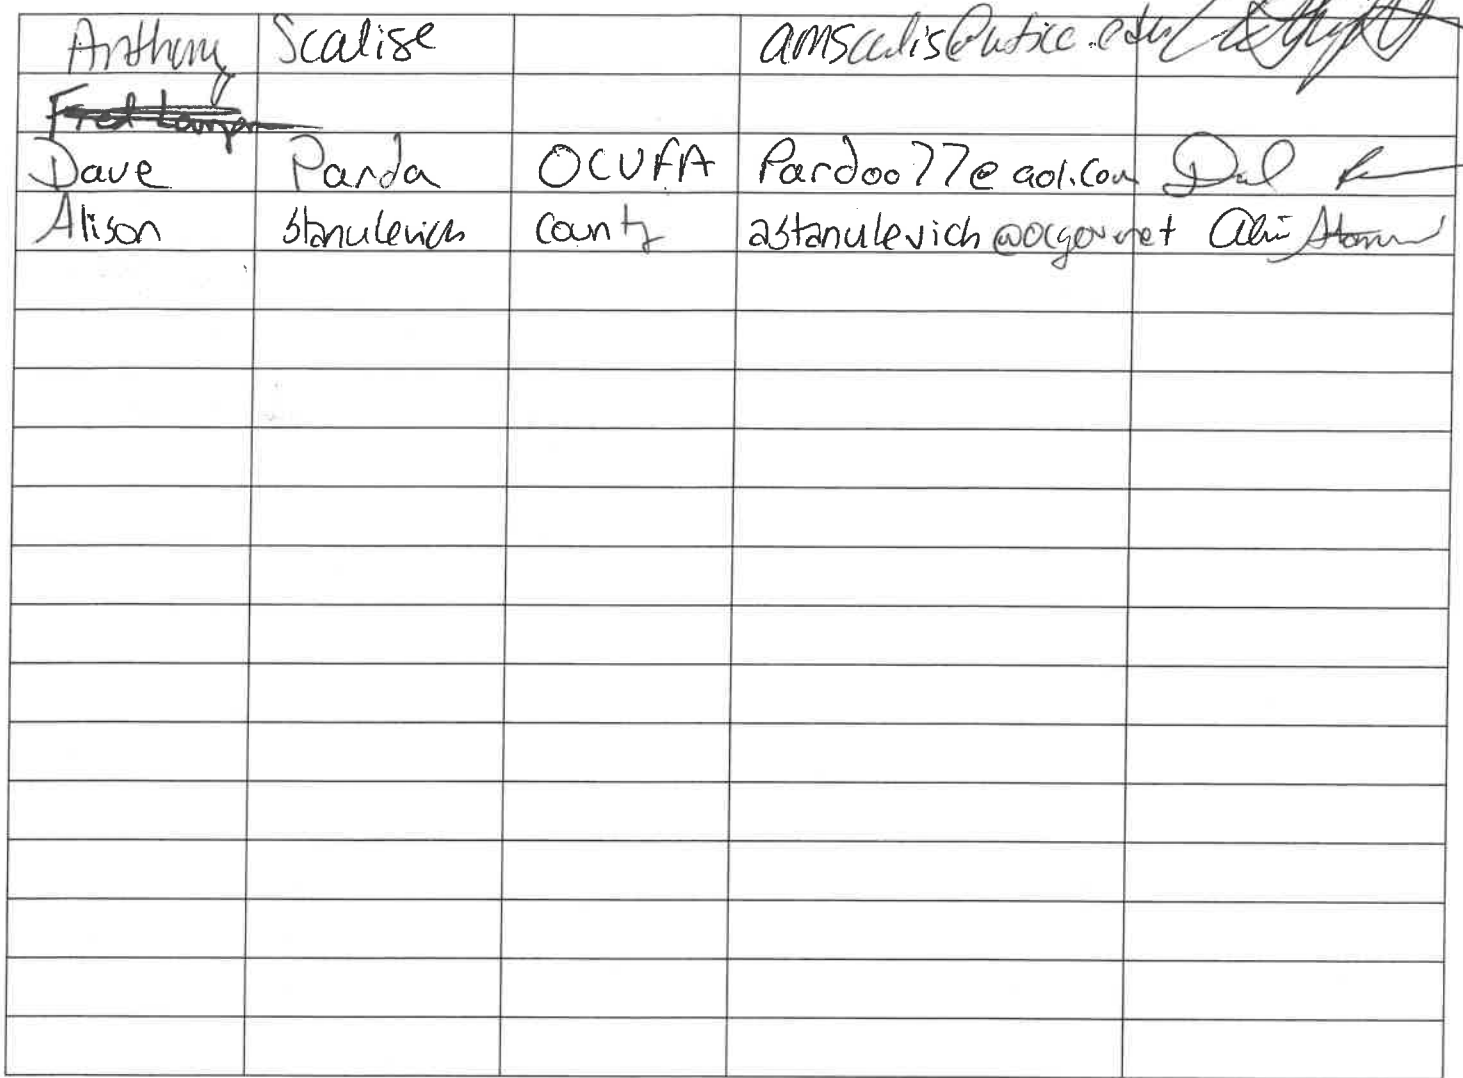 Anthony Scalise amscalis@utica.edu
Fred
Dave Panda OCUFA Pardoo77@aol.com
Alison Stanulevich County astanulevich@ocgov.net